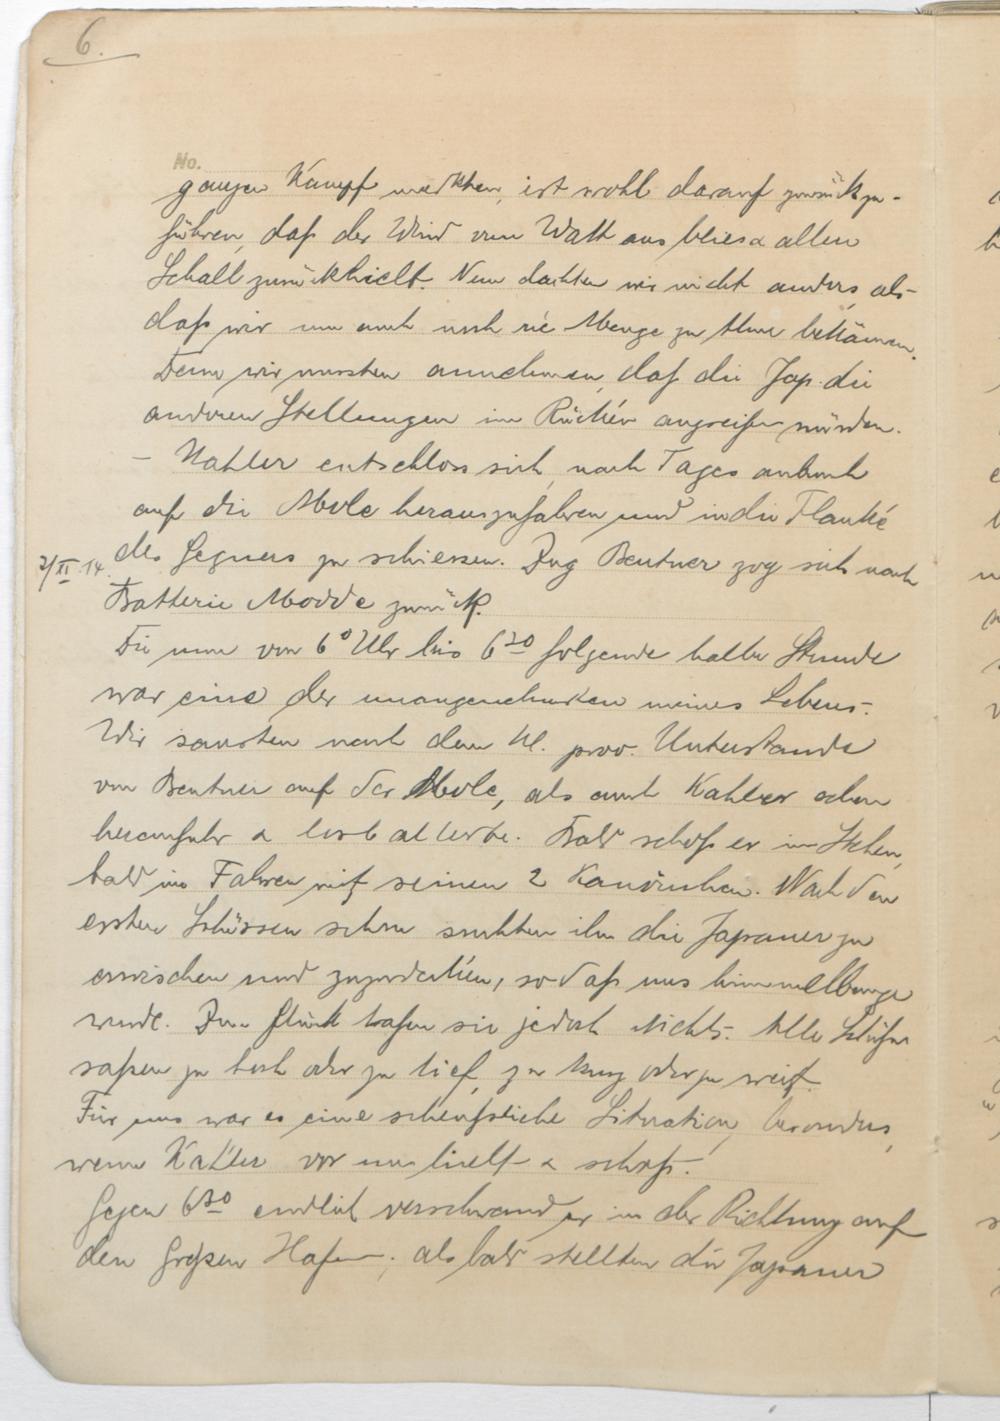 6.
No.
ganzen Kampf merkten, ist wohl darauf zurückzu-
führen, daß der Wind vom Watt aus blies & allen
Schall zurückhielt. Nun dachten wir nicht anders, als
daß wir nun auch noch ne Menge zu thun bekämen.
Denn wir mussten annehmen, daß die Jap. die
anderen Stellungen im Rücken angreifen würden.
– Kahler entschloss sich, nach Tagesanbruch
auf die Mole herauszufahren und in die Flanke
des Gegners zu schiessen. Zug Beutner zog sich nach
7/XI.14.
Batterie Modde zurück.
Die nun von 6⁰ Uhr bis 6³⁰ folgende halbe Stunde
war eine der unangenehmsten meines Lebens.
Wir sausten nach dem kl. prov. Unterstande
von Beutner auf der Mole, als auch Kahler schon
herumfuhr & losballerte. Bald schoß er im Stehen,
bald im Fahren mit seinen 2 Kanönchen. Nach den
ersten Schüssen schon suchten ihn die Japaner zu
erwischen und zuzudecken, so daß uns himmelbange
wurde. Zum Glück trafen sie jedoch nichts. Alle Schüsse
saßen zu hoch oder zu tief, zu kurz oder zu weit.
Für uns war es eine scheußliche Situation, besonders,
wenn Kahler vor uns hielt & schoß.
Gegen 6³⁰ endlich verschwand er in der Richtung auf
den großen Hafen; alsbald stellten die Japaner